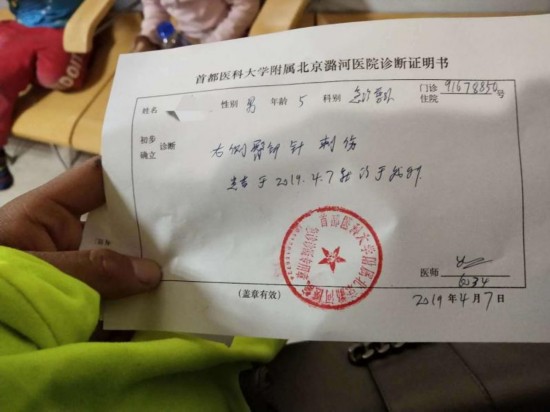 首都医科大学附属北京潞河医院诊断证明书
姓名 性别 男 年龄 5 科别 急诊 门诊 住院 91678850号
初步 确立 诊断
右侧臀部针刺伤
患者于2019.4.7就诊于我
首都医科大学附属北京潞河医院
医师
6034
(盖章有效) 2019年4月7日